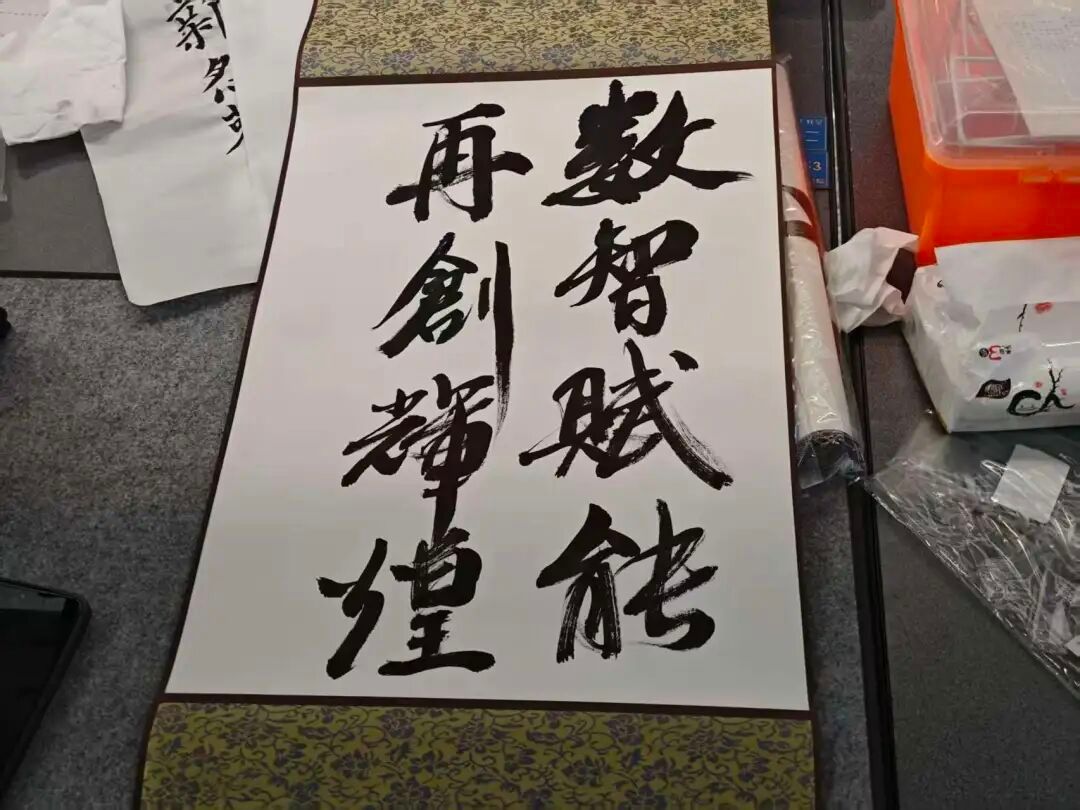 数智赋能
再創輝煌